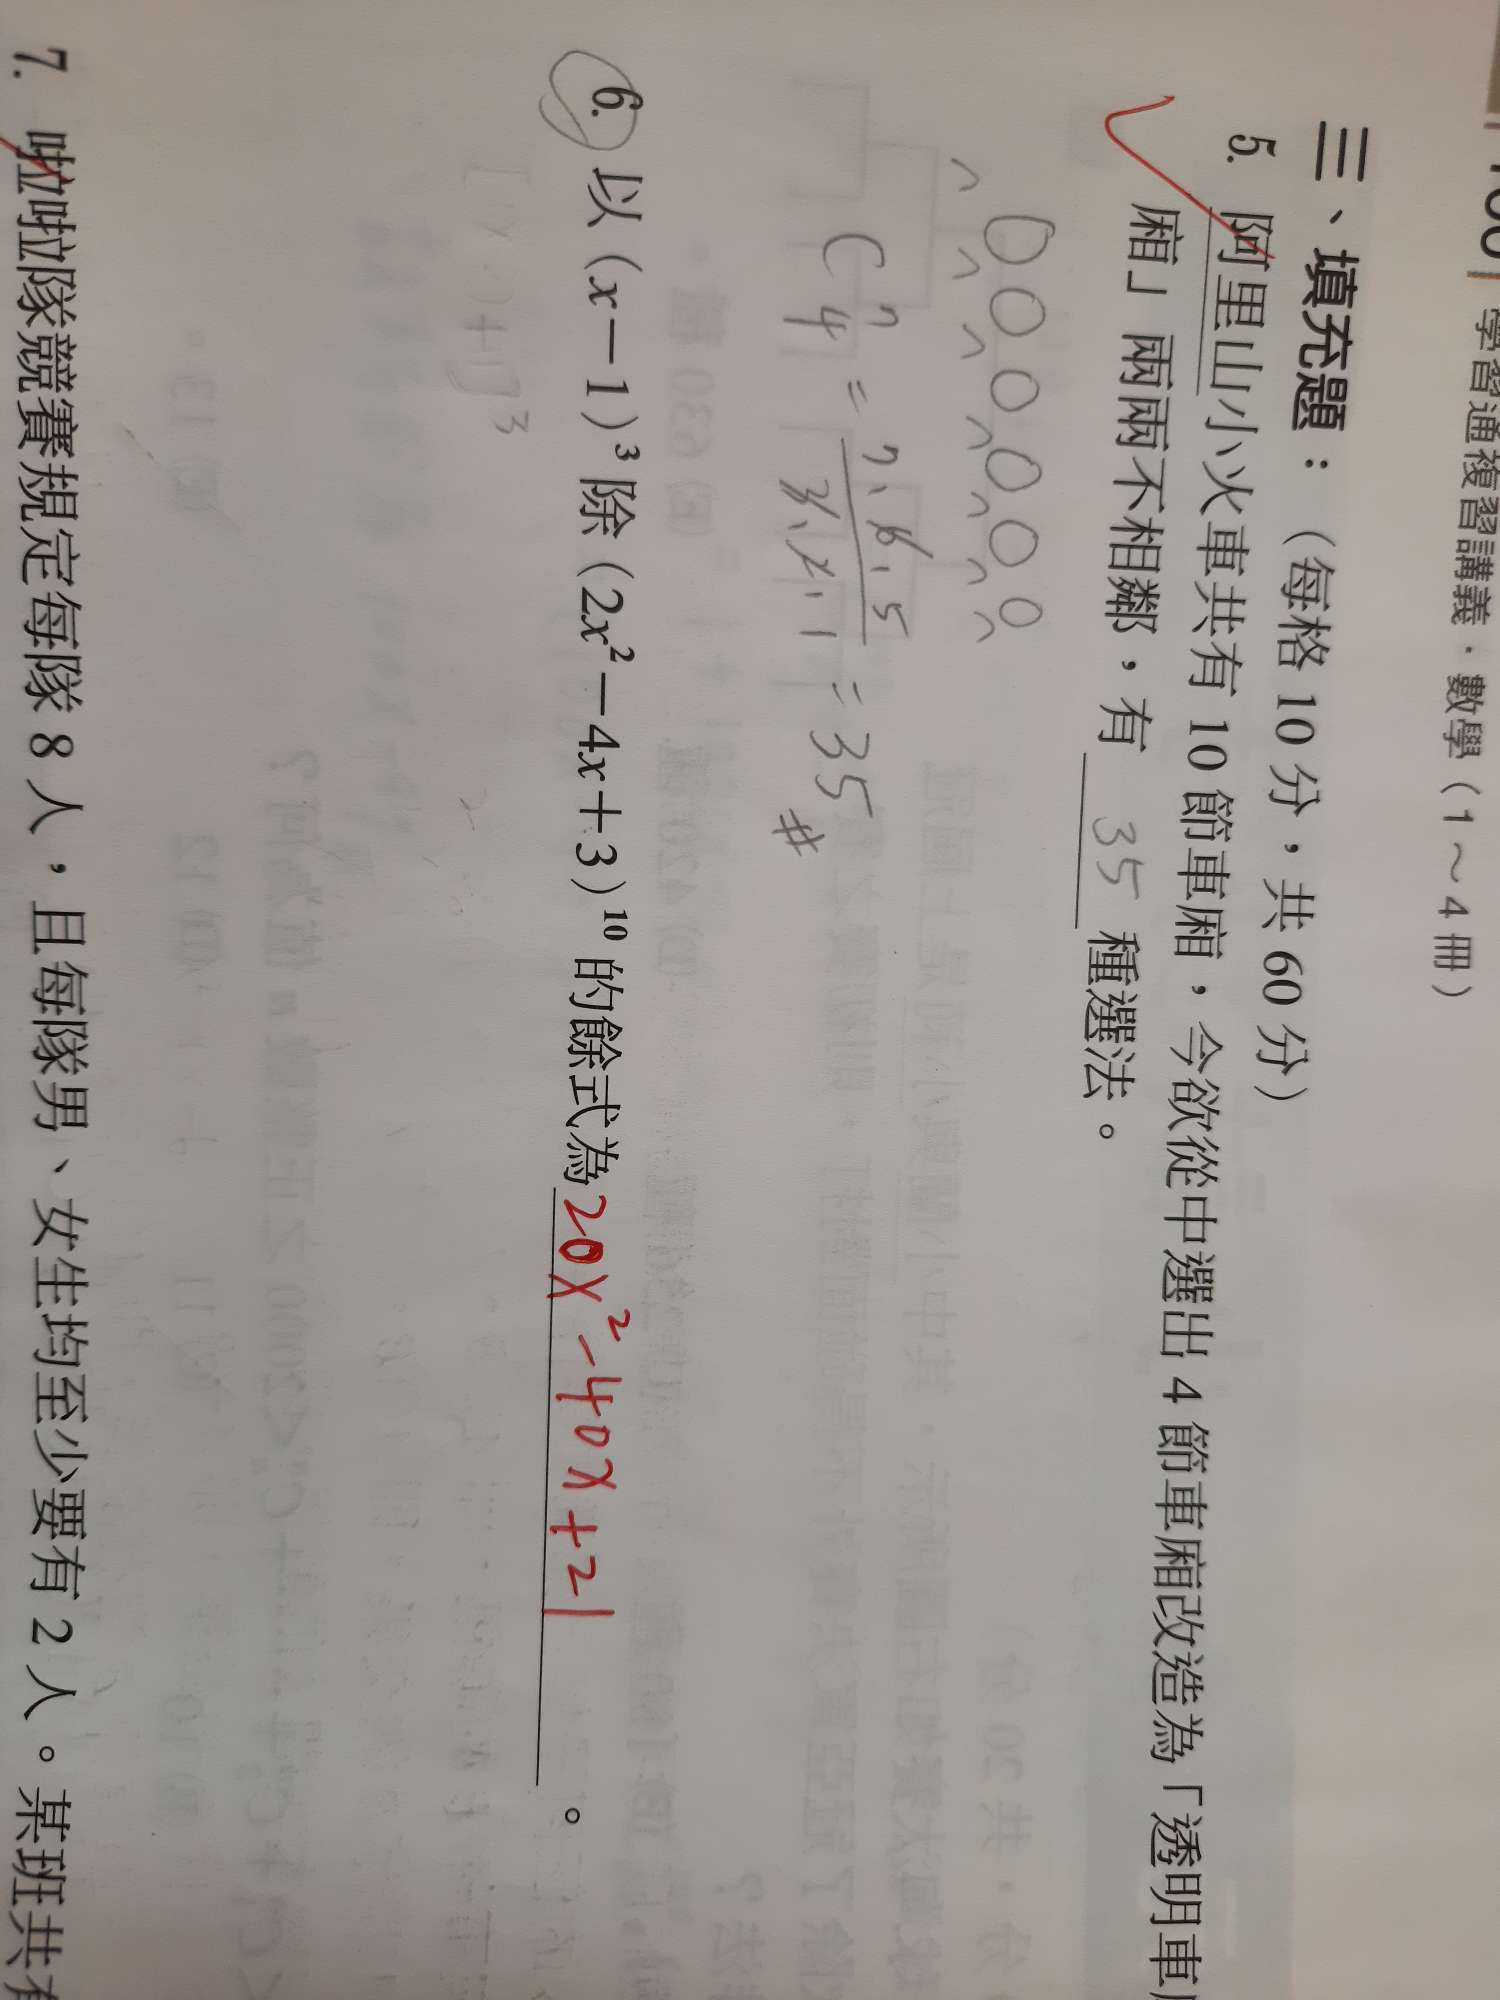 學習通複習講義．數學（1～4冊）
三、填充題：（每格 10 分，共 60 分）
5. 阿里山小火車共有 10 節車廂，今欲從中選出 4 節車廂改造為「透明車
廂」兩兩不相鄰，有 35 種選法。
C 7 4 = 7.6.5 / 3.2.1 = 35 #
6. 以（x－1）³除（2x²－4x＋3）¹⁰的餘式為 20x²-40x+21 。
3
7. 啦啦隊競賽規定每隊 8 人，且每隊男、女生均至少要有 2 人。某班共有